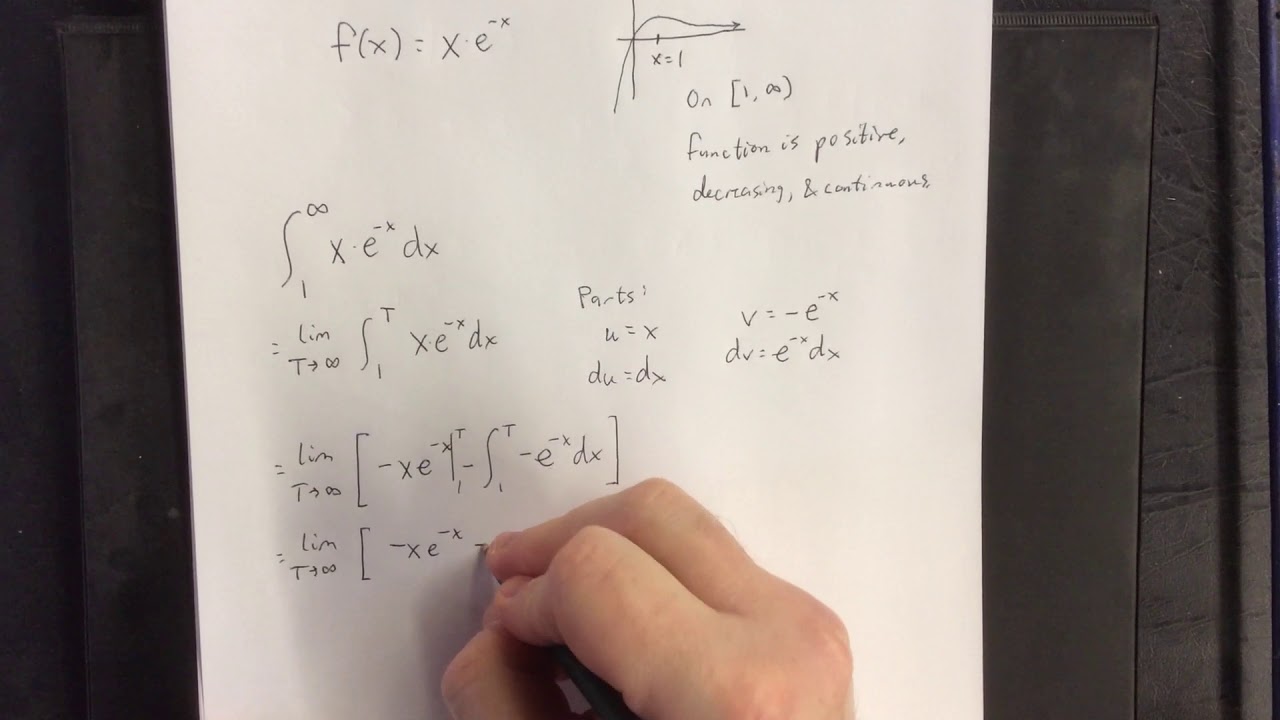 f(x) = x·e^{-x}
x=1
On [1, ∞)
function is positive,
decreasing, & continuous
∫_1^∞ x·e^{-x} dx
= lim_{T→∞} ∫_1^T x·e^{-x} dx
Parts:
u = x
du = dx
v = -e^{-x}
dv = e^{-x} dx
= lim_{T→∞} [ -xe^{-x} |_1^T - ∫_1^T -e^{-x} dx ]
= lim_{T→∞} [ -xe^{-x} -